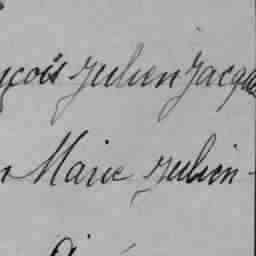 çois Julien Jacqu
Marie Julien